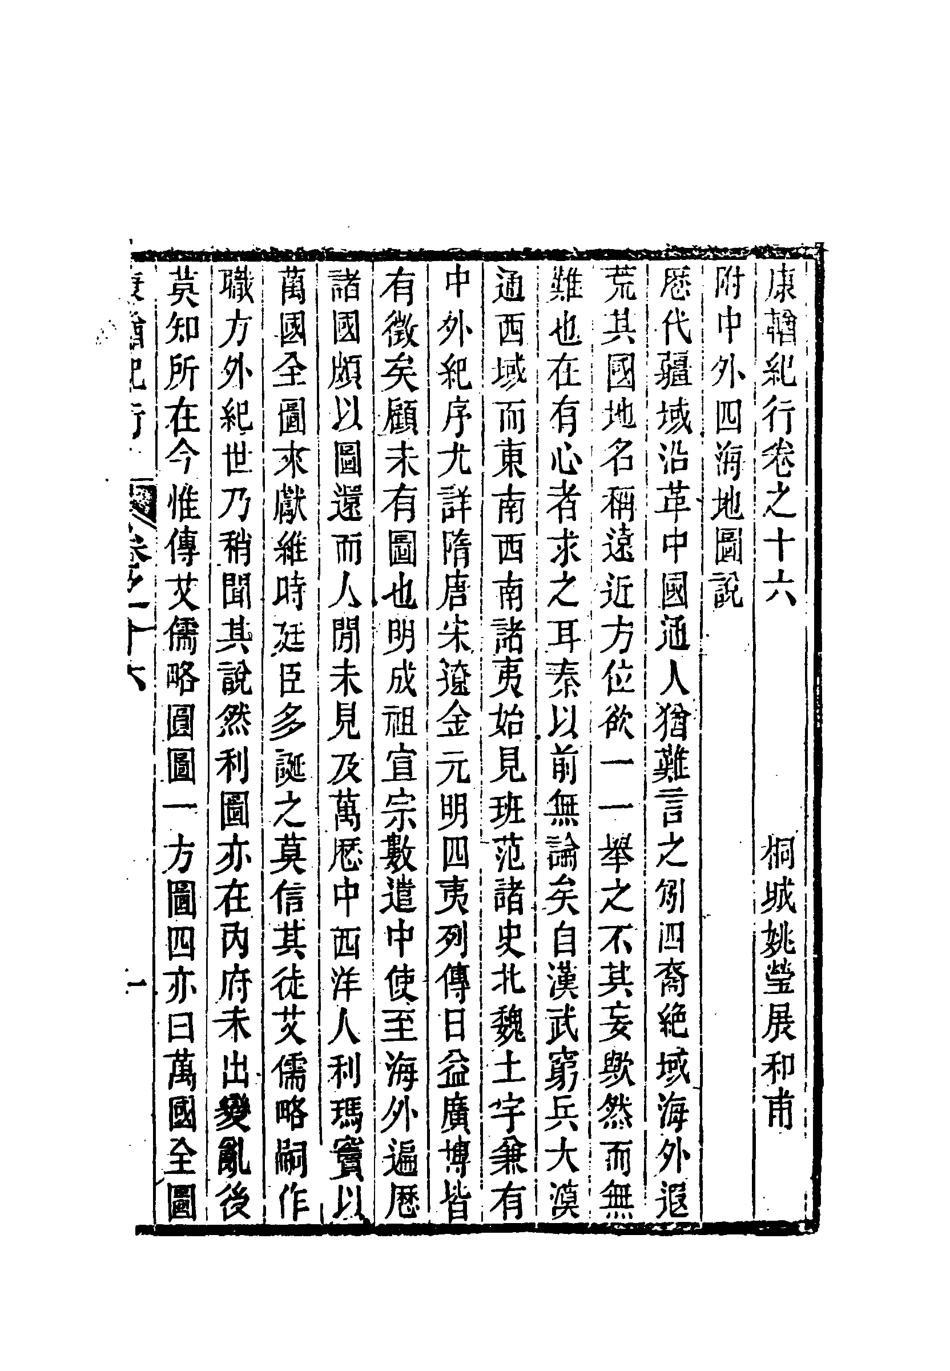 康輶紀行卷之十六　　　　　桐城姚瑩展和甫
附中外四海地圖說
厯代疆域沿革中國通人猶難言之矧四裔絶域海外遐
荒其國地名稱遠近方位欲一一舉之不其妄歟然而無
難也在有心者求之耳秦以前無論矣自漢武窮兵大漠
通西域而東南西南諸夷始見班范諸史北魏土宇兼有
中外紀序尤詳隋唐宋遼金元明四夷列傳日益廣博皆
有徵矣顧未有圖也明成祖宣宗數遣中使至海外遍厯
諸國頗以圖還而人閒未見及萬厯中西洋人利瑪竇以
萬國全圖來獻維時廷臣多誕之莫信其徒艾儒略嗣作
職方外紀世乃稍聞其說然利圖亦在內府未出變亂後
莫知所在今惟傳艾儒略圓圖一方圖四亦曰萬國全圖
康輶紀行　卷之十六　　　一